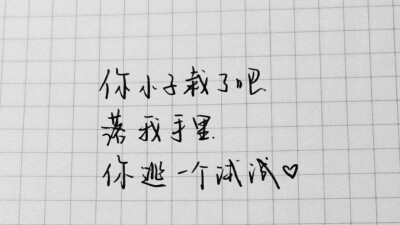 你小子栽了吧
落我手里
你逃一个试试♡